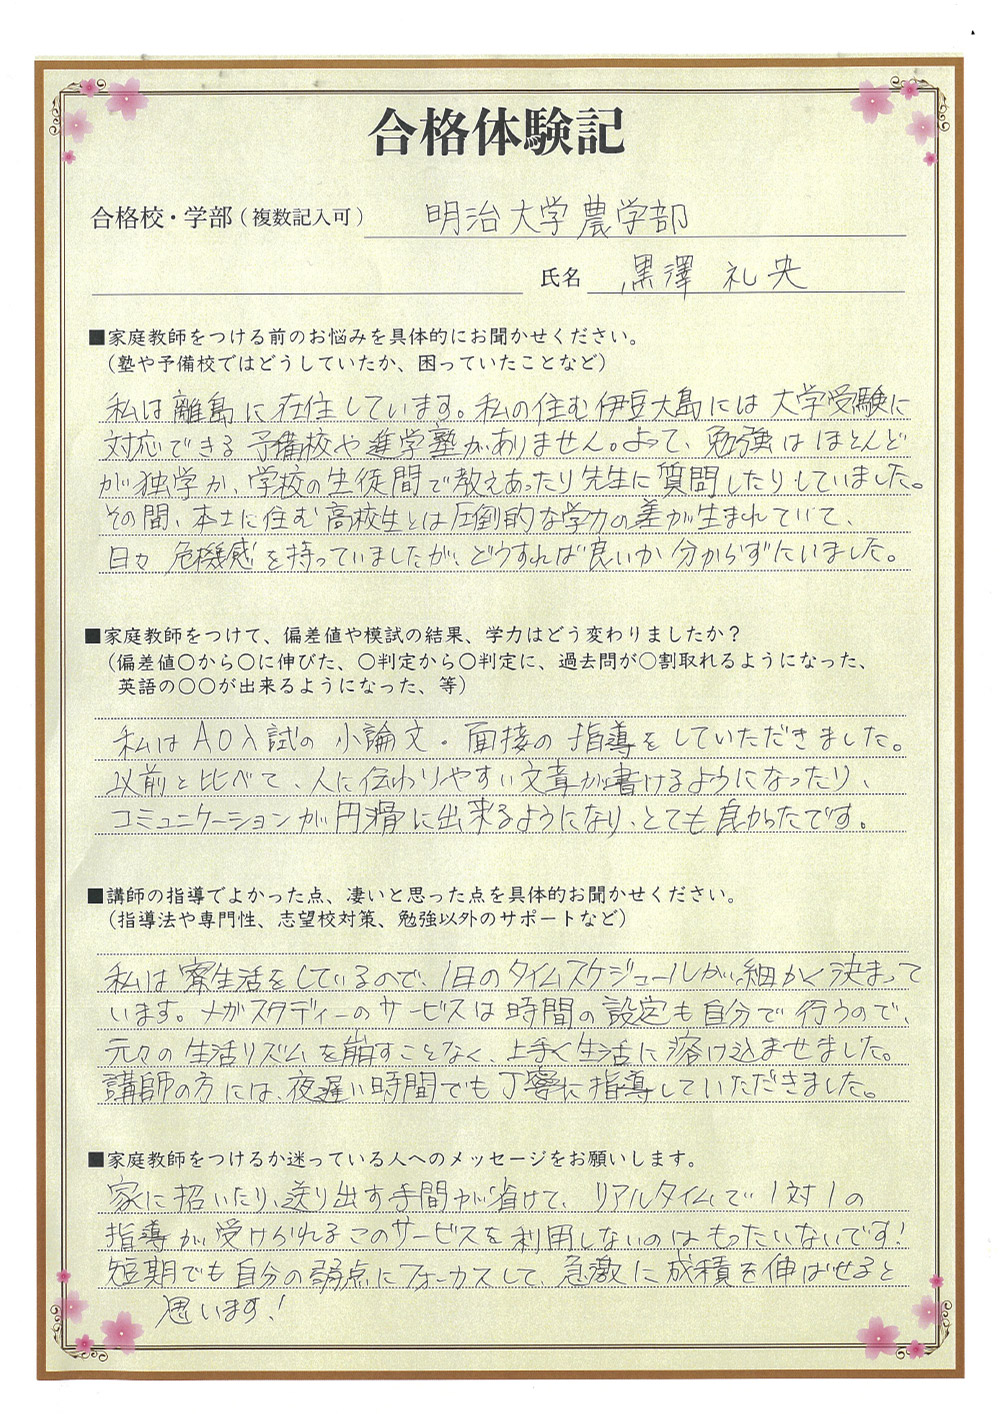 合格体験記
合格校・学部(複数記入可) 明治大学農学部
氏名 黒澤 礼央
■家庭教師をつける前のお悩みを具体的にお聞かせください。
(塾や予備校ではどうしていたか、困っていたことなど)
私は離島に在住しています。私の住む伊豆大島には大学受験に
対応できる予備校や進学塾がありません。よって、勉強はほとんど
が独学か、学校の生徒間で教えあったり先生に質問したりしていました。
その間、本土に住む高校生とは圧倒的な学力の差が生まれていて、
日々危機感を持っていましたが、どうすれば良いか分からずにいました。
■家庭教師をつけて、偏差値や模試の結果、学力はどう変わりましたか?
(偏差値○から○に伸びた、○判定から○判定に、過去問が○割取れるようになった、
英語の○○が出来るようになった、等)
私はAO入試の小論文・面接の指導をしていただきました。
以前と比べて、人に伝わりやすい文章が書けるようになったり、
コミュニケーションが円滑に出来るようになり、とても良かったです。
■講師の指導でよかった点、凄いと思った点を具体的お聞かせください。
(指導法や専門性、志望校対策、勉強以外のサポートなど)
私は寮生活をしているので、1日のタイムスケジュールが細かく決まって
います。メガスタディーのサービスは時間の設定も自分で行うので、
元々の生活リズムを崩すことなく、上手く生活に溶け込ませました。
講師の方には、夜遅い時間でも丁寧に指導していただきました。
■家庭教師をつけるか迷っている人へのメッセージをお願いします。
家に招いたり、送り出す手間が省けて、リアルタイムで1対1の
指導が受けられるこのサービスを利用しないのはもったいないです!
短期でも自分の弱点にフォーカスして、急激に成積を伸ばせると
思います!